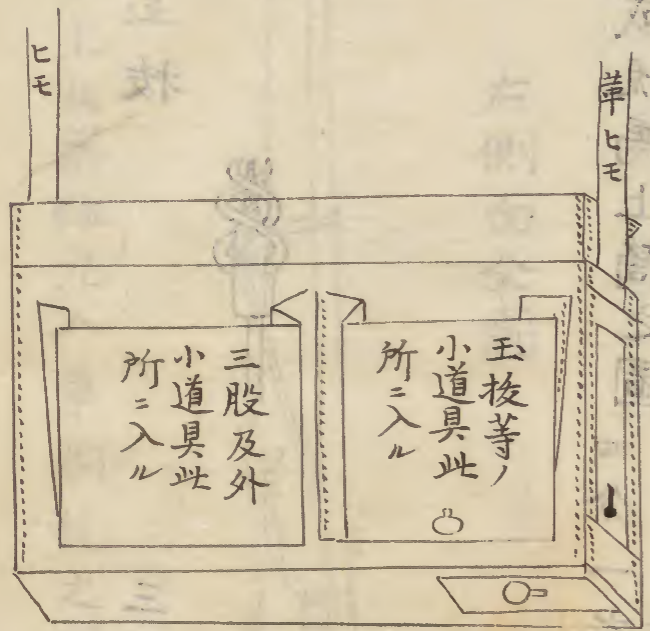 革ヒモ
ヒモ
玉抜等ノ
小道具此
所ニ入ル
三股及外
小道具此
所ニ入ル